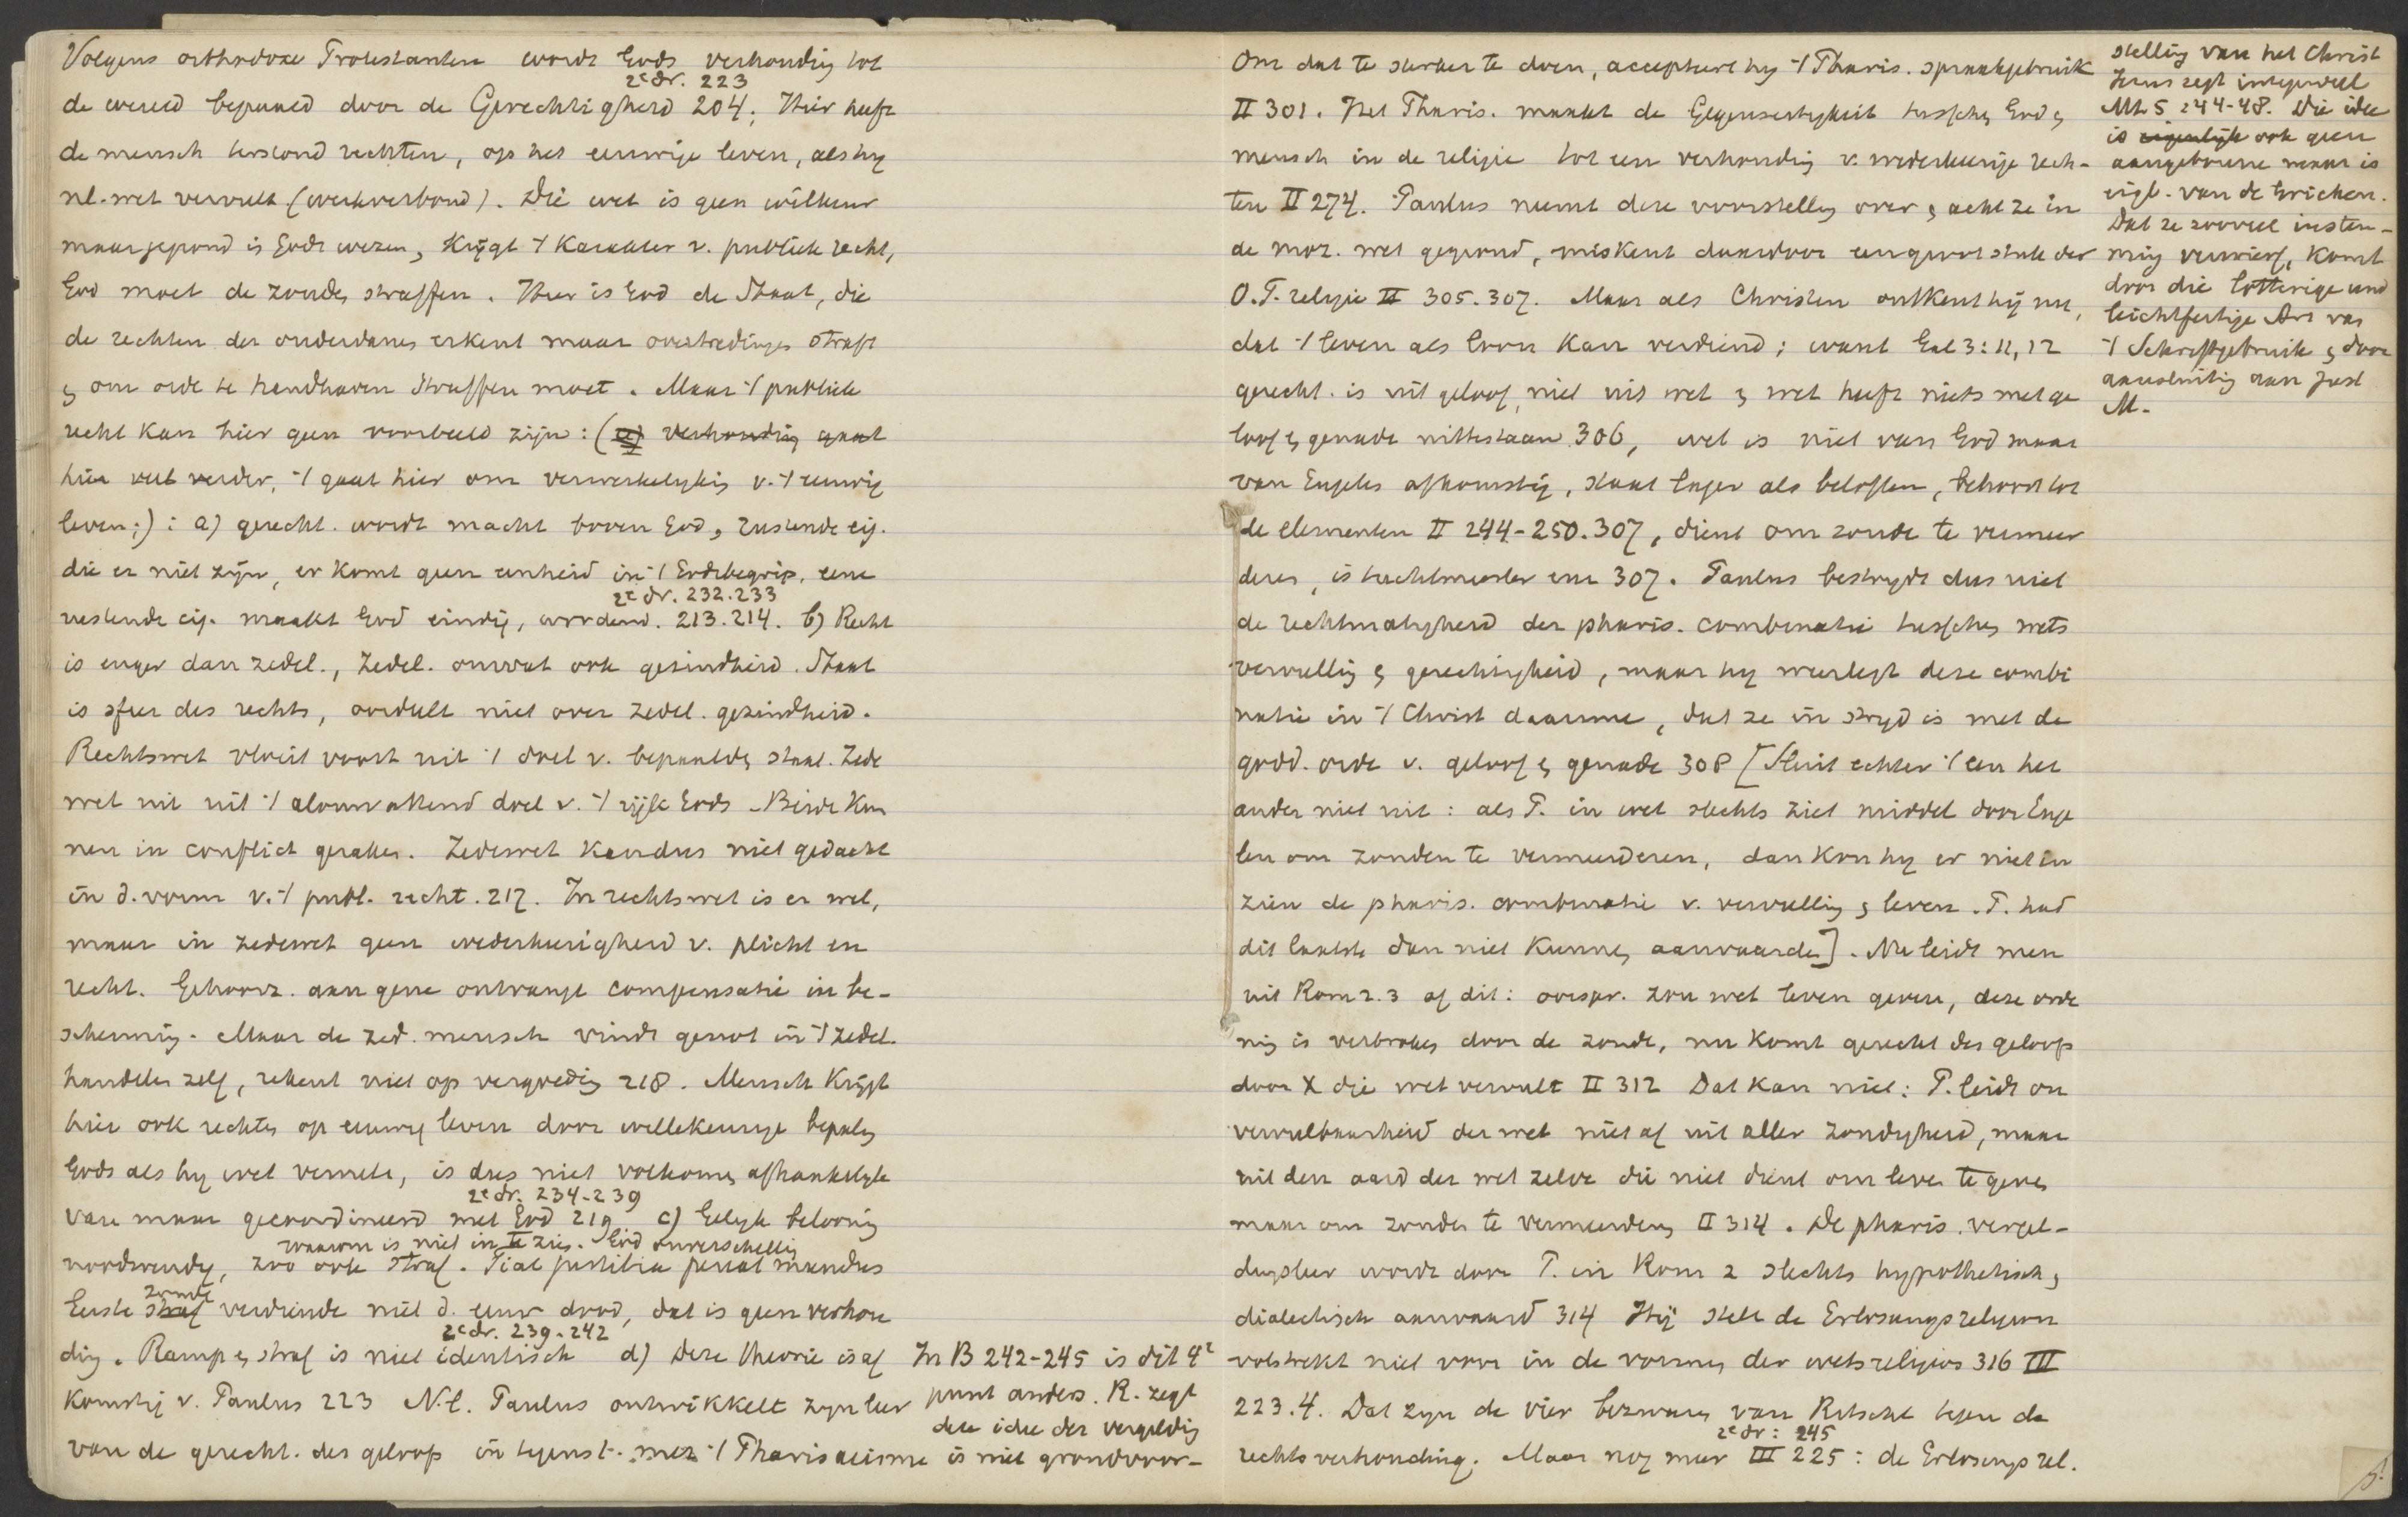 Volgens orthodoxe Protestanten wordt Gods verhouding tot
2e dr. 223
de wereld bepaald door de Gerechtigheid 204; Hier heeft
de mensch terstond rechten, op het eeuwige leven, als hy
nl. wet vervult (werkverbond). Die wet is geen willkeur
maar gegrond in Gods wezen, krijgt 't karakter v. publiek recht,
God moet de zonde straffen. Hier is God de Staat, die
de rechten der onderdanen erkent maar overtredingen straft
& om orde te handhaven straffen moet. Maar 't publiek
recht kan hier geen voorbeeld zijn: ( verhouding gaat
hier veel verder, 't gaat hier om verwerkelyking v. 't eeuwig
leven;): a) gerecht. wordt macht boven God, rustende eig.
die er niet zijn, er komt geen eenheid in 't Godsbegrip, eene
2e dr. 232.233
rustende eig. maakt God eindig, wordend. 213.214. b) Recht
is enger dan zedel., Zedel. omvat ook gezindheid. Staat
is sfeer des rechts, oordeelt niet over zedel. gezindheid.
Rechtswet vloeit voort uit 't doel v. bepaalden staat. Zede
wet uit uit 't alomvattend doel v. 't rijk Gods. Beide kun
nen in conflict geraken. Zedewet kan dus niet gedacht
in d. vorm v. 't publ. recht. 217. In rechtswet is er wel,
maar in zedewet geen wederkeerigheid v. plicht en
recht. Gehoorz. aan gene ontvangt compensatie in be-
scherming. Maar de zed. mensch vindt genot in 't zedel.
handelen zelf, rekent niet op vergoeding 218. Mensch krijgt
hier ook rechten op eeuwig leven door willekeurige bepaling
Gods als hy wet vervult, is dus niet volkomen afhankelyk
2e dr. 234-239
van maar gecoordineerd met God 219. c) Gelyk belooning
waarom is niet in te zien. God onverschillig
noodwendig, zoo ook straf. Fiat justitia pereat mundus
zonde
Eerste straf verdiende niet d. eeuw. dood, dat is geen verhou
2e dr. 239-242
ding. Ramp & straf is niet identisch d) Deze theorie is af
komstig v. Paulus 223 N.l. Paulus ontwikkelt zyn leer
van de gerecht. des geloofs in tegenst. met 't Pharisaeisme
In B 242-245 is dit 4e
punt anders. R. zegt
deze idee der vergelding
is niet grondvoor-
stelling van het Christ
Jezus zegt integendeel
Mt 5:44-48. Die idee
is eigenlijk ook geen
aangeborene maar is
eigl. van de Grieken.
Dat ze zooveel instem-
ming verwierf, komt
door die lotterige und
leichtfertige Art van
't Schriftgebruik & door
aansluiting aan Just
M.
Om dat te sterker te doen, accepteert hy 't Pharis. spraakgebruik
II 301. Het Pharis. maakt de Gegenseitigkeit tusschen God &
mensch in de religie tot een verhouding v. wederkeerige rech-
ten II 274. Paulus neemt deze voorstelling over & acht ze in
de moz. wet gegrond, miskent daardoor een groot stuk der
O.T. religie II 305.307. Maar als Christen ontkent hij nu,
dat 't leven als loon kan verdiend; want Gal 3:11,12
gerecht. is uit geloof, niet uit wet & wet heeft niets met ge
loof & genade uittestaan 306, wet is niet van God maar
van Engelen afkomstig, staat lager als beloften, behoort tot
de elementen II 244-250.307, dient om zonde te vermeer
deren, is tuchtmeester enz 307. Paulus bestrydt dus niet
de rechtmatigheid der pharis. combinatie tusschen wets
vervulling & gerechtigheid, maar hy weerlegt deze combi
natie in 't Christ daarmee, dat ze in stryd is met de
godd. orde v. geloof & genade 308 [Sluit echter 't een het
ander niet uit: als P. in wet slechts ziet middel door Enge
len om zonden te vermeerderen, dan kon hy er niet in
zien de pharis. combinatie v. vervulling & leven. P. had
dit laatste dan niet kunnen aanvaarden]. Nu leidt men
uit Rom 2.3 af dit: oorspr. zou wet leven geven, deze orde
ning is verbroken door de zonde, nu komt gerecht des geloofs
door X die wet vervult II 312 Dat kan niet: P. leidt on
vervulbaarheid der wet niet af uit aller zondigheid, maar
uit den aard der wet zelve die niet dient om leven te geven
maar om zonden te vermeerderen II 314. De pharis. vergel-
dingsleer wordt door P. in Rom 2 slechts hypothetisch &
dialectisch aanvaard 314 Hij stelt de Erlosungsreligion
volstrekt niet voor in de vormen der wetsreligion 316 III
223.4. Dat zyn de vier bezwaren van Ritschl tegen de
2e dr: 245
rechtsverhouding. Maar nog meer III 225: de Erlosungsrel.